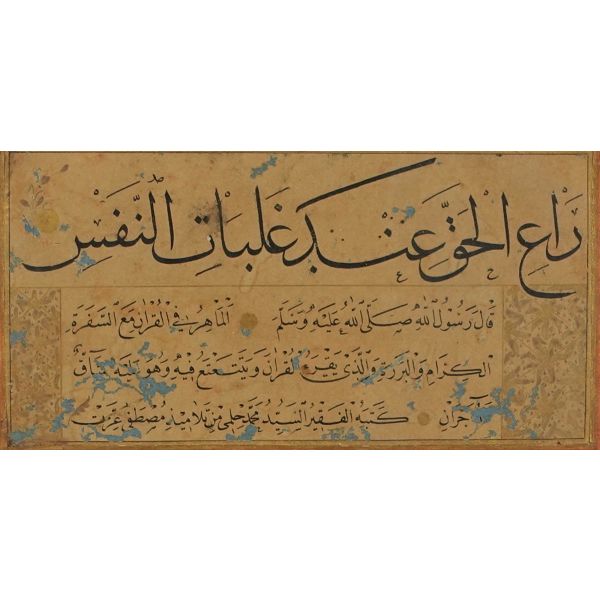 رَاعِ الْحَقَّ عِنْدَ غَلَبَاتِ النَّفْسِ
قَالَ رَسُولُ اللّٰهِ صَلَّى اللّٰهُ عَلَيْهِ وَسَلَّمَ الْمَاهِرُ فِي الْقُرْاٰنِ مَعَ السَّفَرَةِ
الْكِرَامِ وَالْبَرَرَةِ وَالَّذِي يَقْرَءُ الْقُرْاٰنَ وَيَتَتَعْتَعُ فِيهِ وَهُوَ عَلَيْهِ شَاقٌّ
اَجْرَانِ كَتَبَهُ الْفَقِيرُ السَّيِّدُ مُحَمَّد حِلْمِي مِنْ تَلَامِيذِ مُصْطَفَى عِزَّت